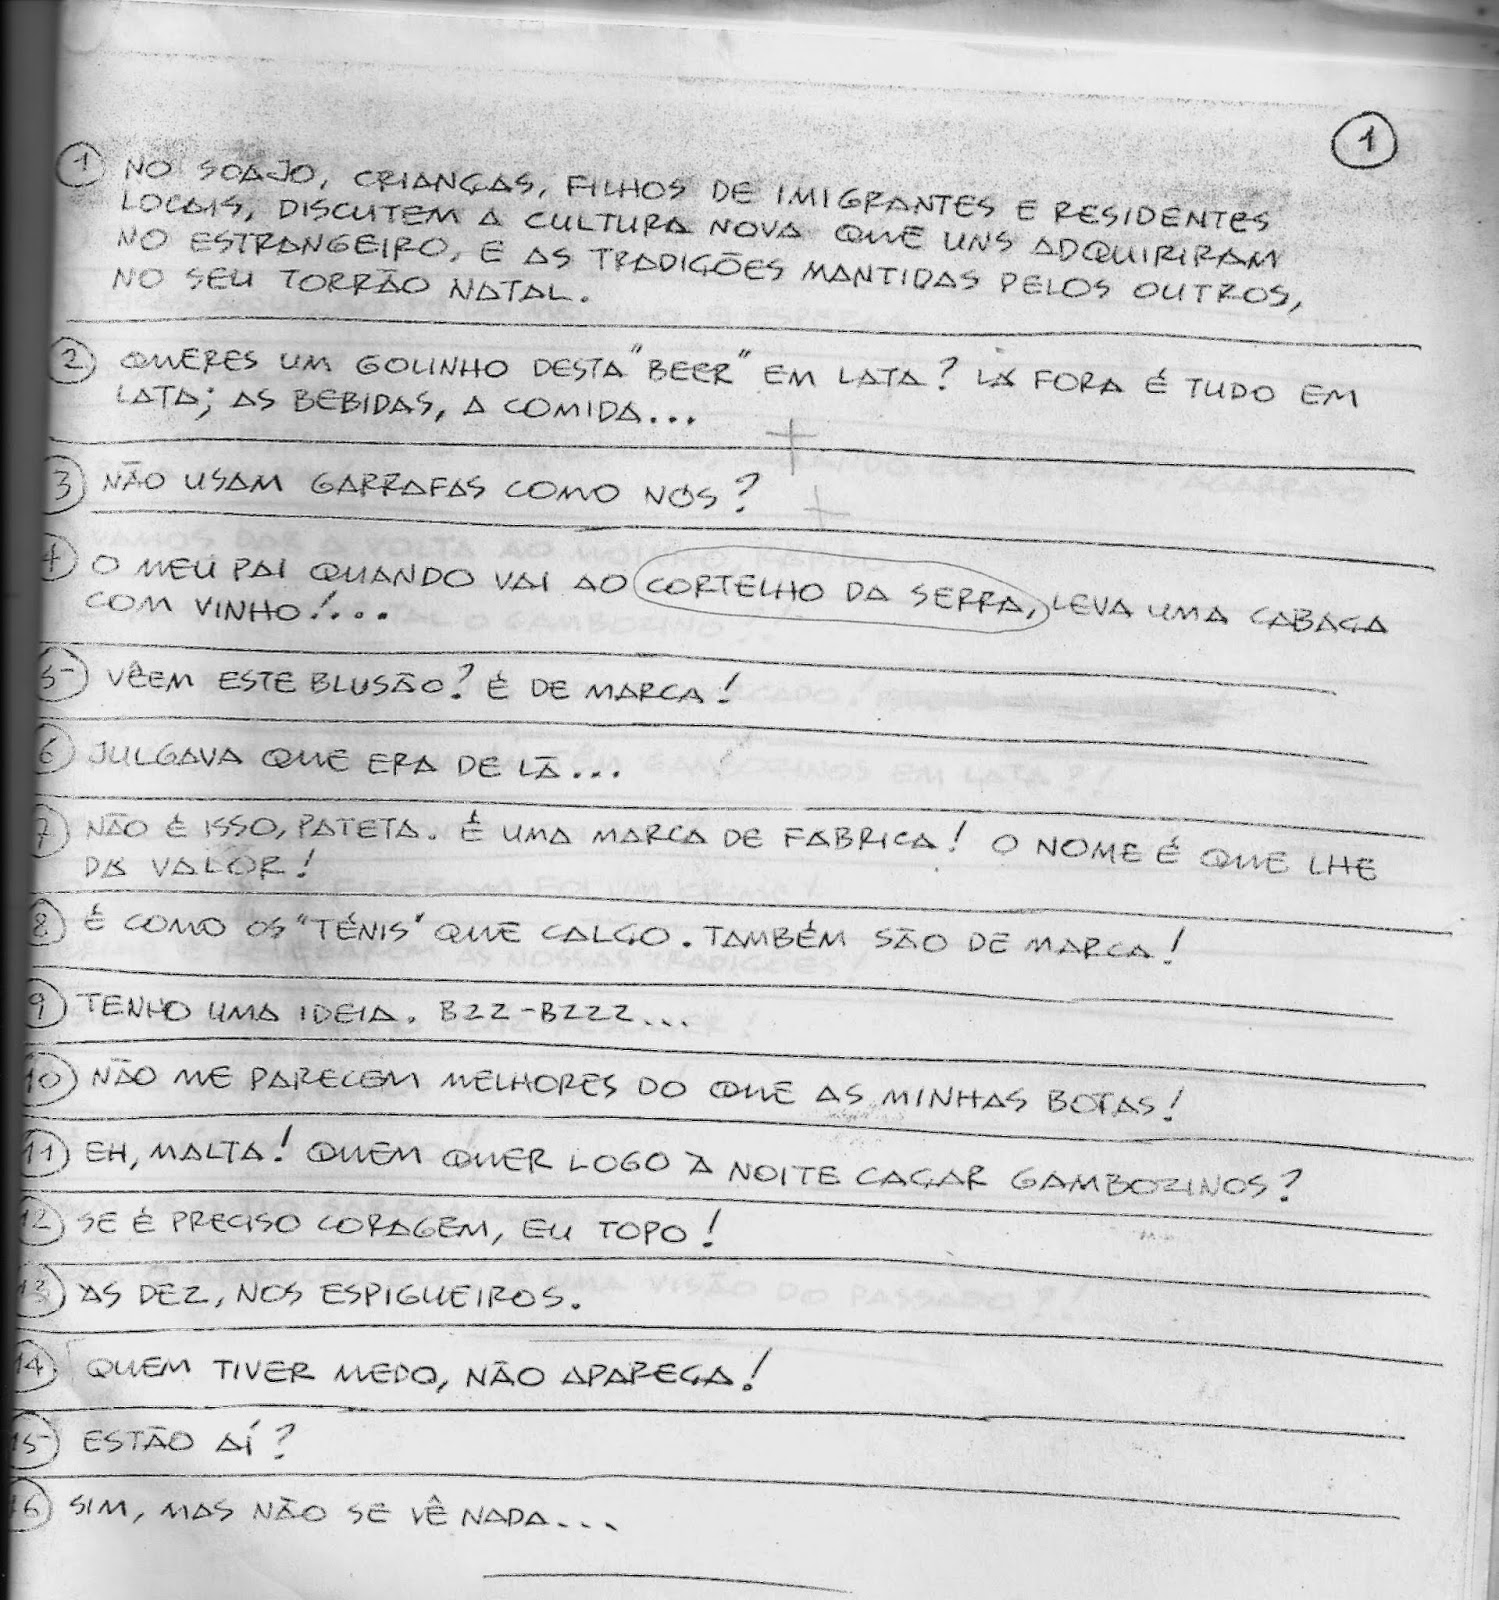 1
1 NO SOAJO, CRIANÇAS, FILHOS DE IMIGRANTES E RESIDENTES
LOCAIS, DISCUTEM A CULTURA NOVA QUE UNS ADQUIRIRAM
NO ESTRANGEIRO, E AS TRADIÇÕES MANTIDAS PELOS OUTROS,
NO SEU TORRÃO NATAL.
2 QUERES UM GOLINHO DESTA "BEER" EM LATA? LÁ FORA É TUDO EM
LATA; AS BEBIDAS, A COMIDA...
3 NÃO USAM GARRAFAS COMO NÓS?
4 O MEU PAI QUANDO VAI AO CORTELHO DA SERRA, LEVA UMA CABAÇA
COM VINHO!...
5 VÊEM ESTE BLUSÃO? É DE MARCA!
6 JULGAVA QUE ERA DE LÃ...
7 NÃO É ISSO, PATETA. É UMA MARCA DE FABRICA! O NOME É QUE LHE
DÁ VALOR!
8 É COMO OS "TÉNIS" QUE CALÇO. TAMBÉM SÃO DE MARCA!
9 TENHO UMA IDEIA. BZZ-BZZZ...
10 NÃO ME PARECEM MELHORES DO QUE AS MINHAS BOTAS!
11 EH, MALTA! QUEM QUER LOGO À NOITE CAÇAR GAMBOZINOS?
12 SE É PRECISO CORAGEM, EU TOPO!
13 ÀS DEZ, NOS ESPIGUEIROS.
14 QUEM TIVER MEDO, NÃO APAREÇA!
15 ESTÃO AÍ?
16 SIM, MAS NÃO SE VÊ NADA...